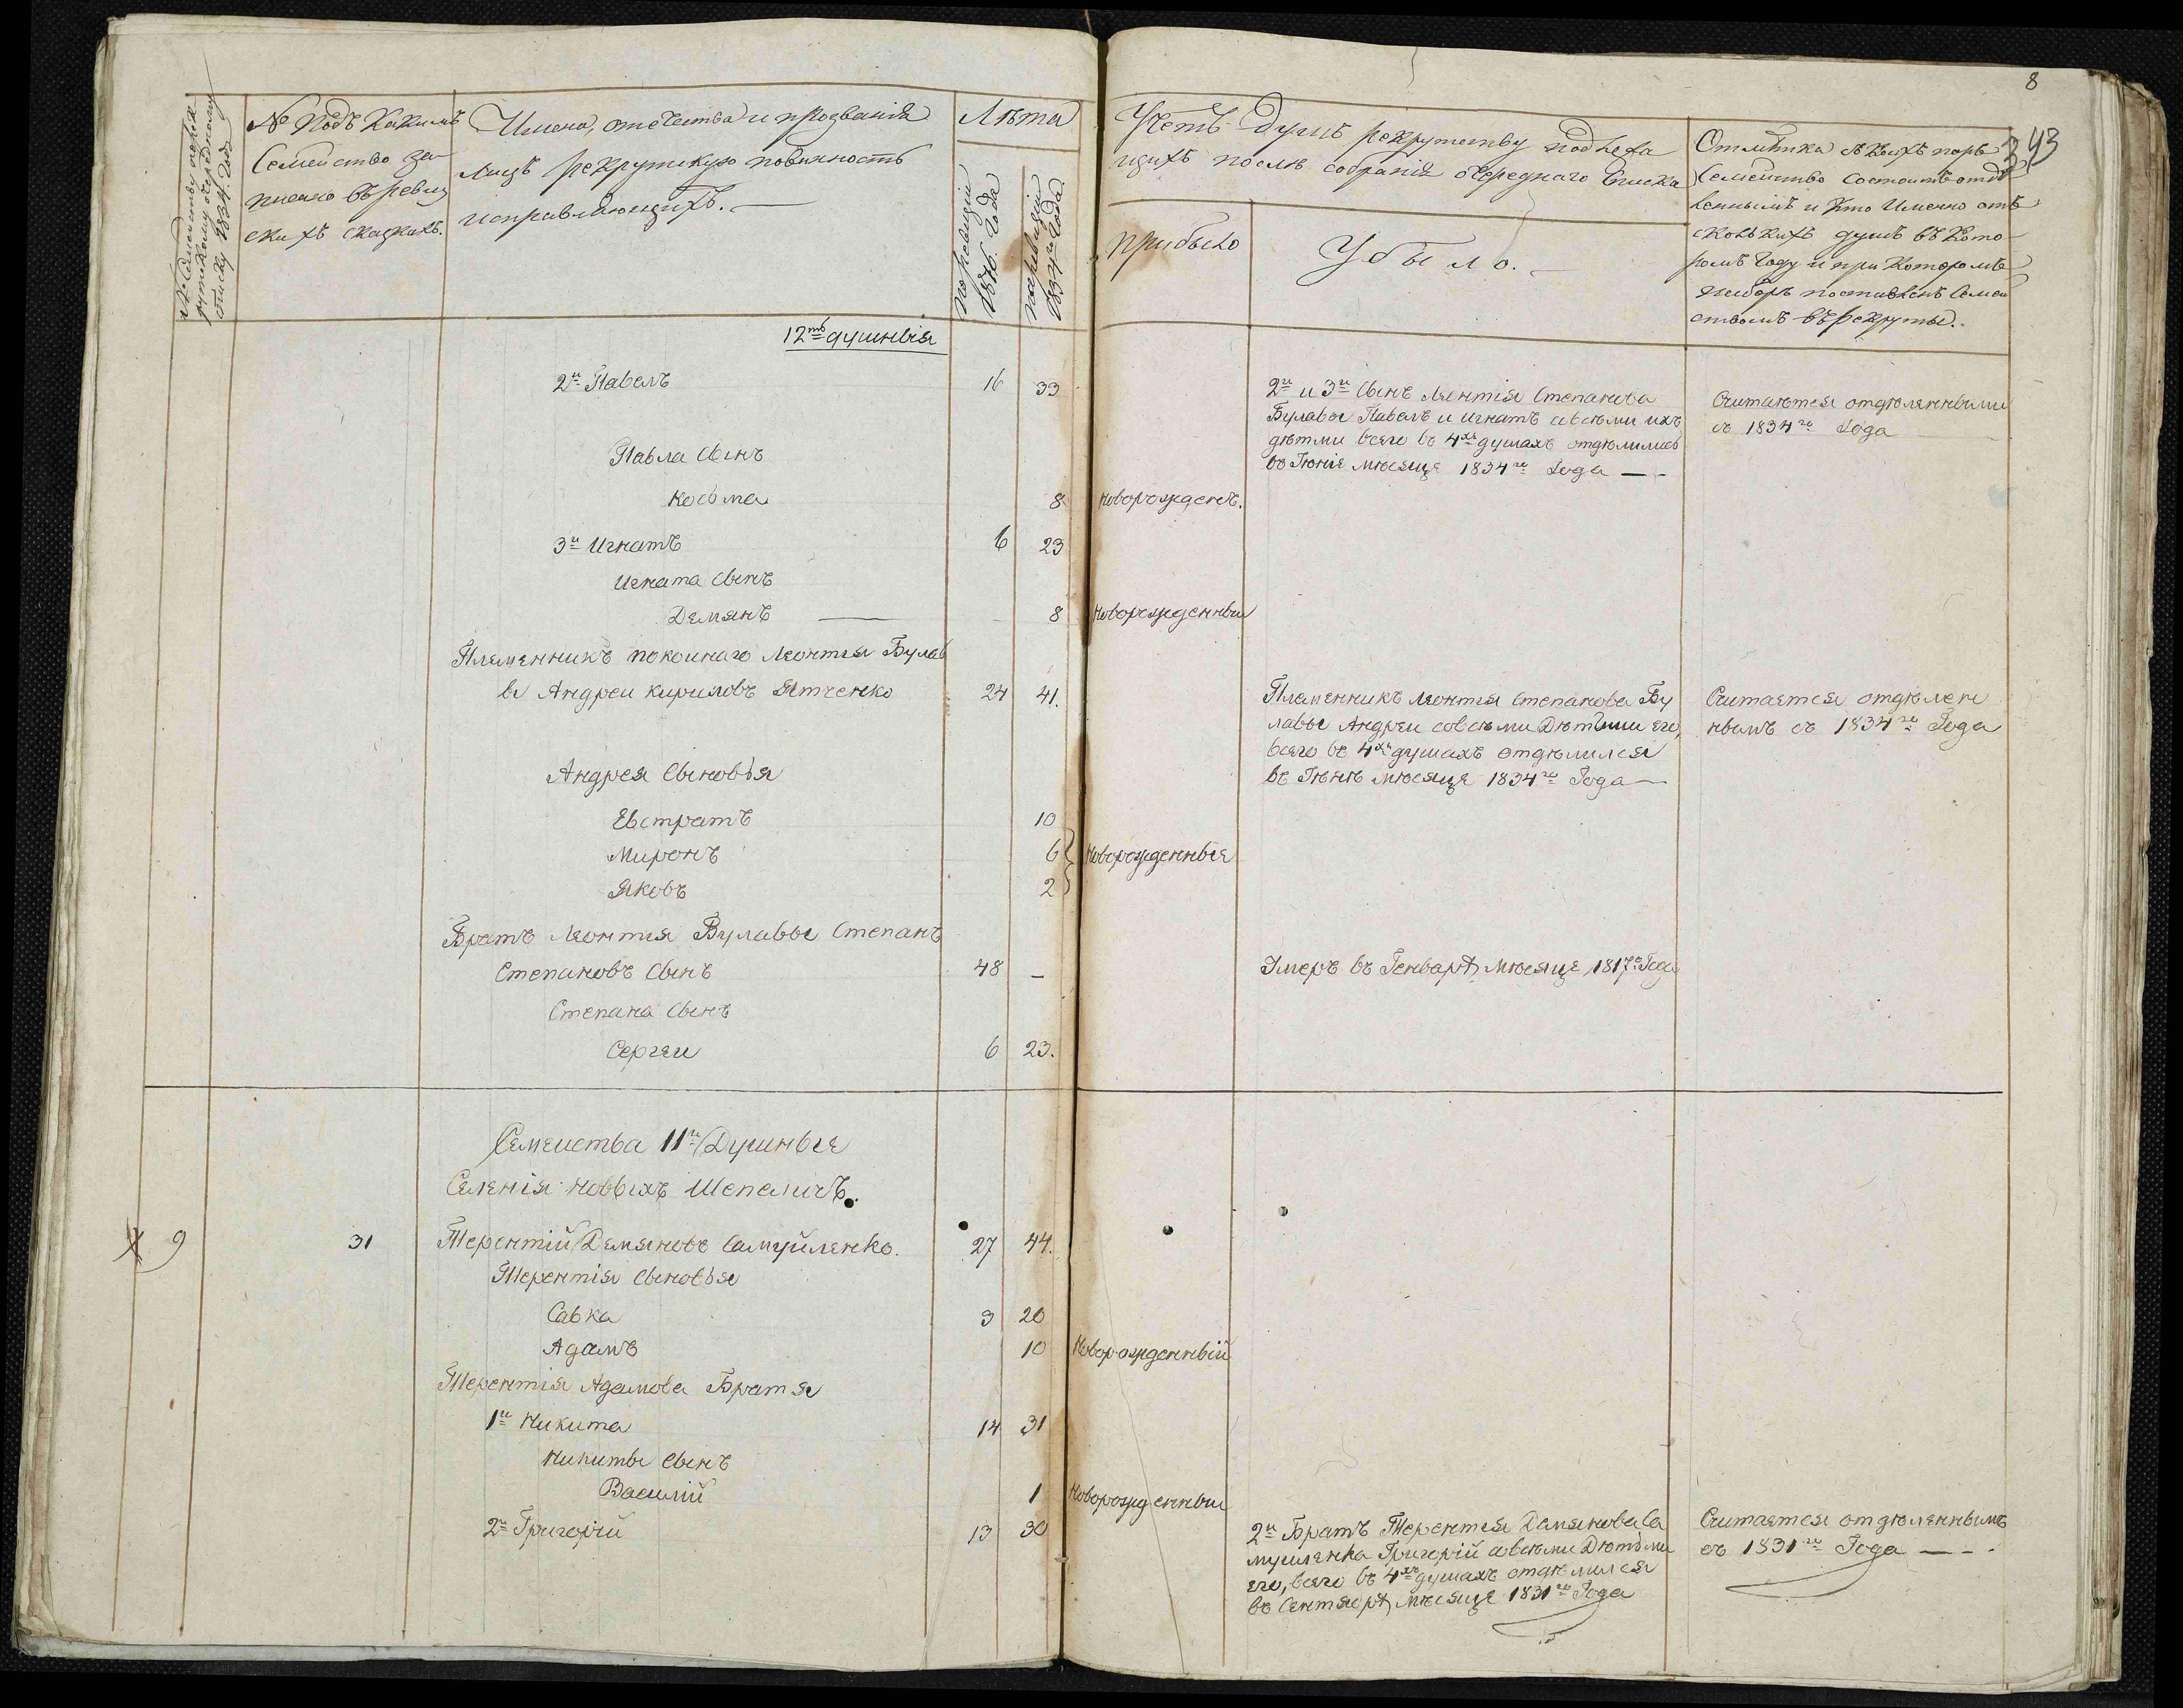 8
343
№ Семейству по рек
рутскому очередному
списку 1834. года
№ Подъ Какимъ
Семейство за-
писано въ ревиз
скихъ сказкахъ.
Имена, отечества и прозванія
лицъ рекрутскую повинность
исправляющихъ.
Лѣта
по ревизіи
1816. года
по ревизіи
1834го года
Учетъ душъ рекрутству подлежа
щихъ послѣ собранія очереднаго Списка
прибыло
Убыло.
Отмѣтка съ коихъ поръ
Семейство состоитъ отдѣ
леннымъ и кто Именно отъ
сколькихъ душъ въ Кото-
ромъ Году и при Которомъ
наборѣ поставленъ Семей
ствомъ въ рекруты.
12ть душнвія
2й Павелъ 16 33
2й и 3й Сынъ Леонтія Степанова
Булавы Павелъ и Игнатъ совсѣми ихъ
дѣтми всего въ 4хъ душахъ отдѣлились
въ Іюніе мѣсяце 1834го Года
Считаются отдѣленными
съ 1834го Года
Павла Сынъ
Косьма 8 новорожденъ.
3й Игнатъ 6 23
Игната Сынъ
Демянъ 8 новорожденный
Племенникъ покойнаго Леонтія Булав
вы Андрей Кириловъ Ятченко 24 41.
Племенникъ Леонтія Степанова Бу
лавы Андрей совсѣми Дѣтьми его,
всего въ 4хъ душахъ отдѣлился
въ Іюнѣ мѣсяце 1834го Года
Считается отдѣлен
нымъ съ 1834го Года
Андрея Сыновья
Евстратъ 10
Миронъ 6 Новорожденные
Яковъ 2
Братъ Леонтія Булавы Степанъ
Степановъ Сынъ 48 —
Умеръ въ Генварѣ мѣсяце 1817го Года
Степана Сынъ
Сергей 6 23.
Семейства 11й Душныя
Селенія новыхъ Шепеличъ.
9 31 Терентій Демяновъ Самуйленко. 27 44.
Терентія Сыновья
Савка 3 20
Адамъ 10 Новорожденный
Терентія Адамова Братя
1й Никита 14 31
Никиты Сынъ
Василій 1 Новорожденный
2й Григорій 13 30
2й Братъ Терентія Демянова Са
муиленка Григорій совсѣми Дѣтьми
его, всего въ 4хъ душахъ отдѣлился
въ Сентябрѣ мѣсяце 1831го Года
Считается отдѣленнымъ
съ 1831го Года